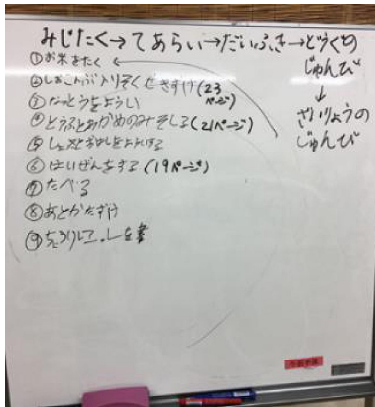 みじたく→てあらい→だいふき→どうぐの
じゅんび
↓
ざいりょうの
じゅんび
①お米をたく
②しおこんぶ入りそくせきづけ(23ページ)
③なっとうをようい
④とうふとわかめのみそしる(21ページ)
⑤しょっきとおはしをようい
⑥はいぜんをする(19ページ)
⑦たべる
⑧あとかたづけ
⑨